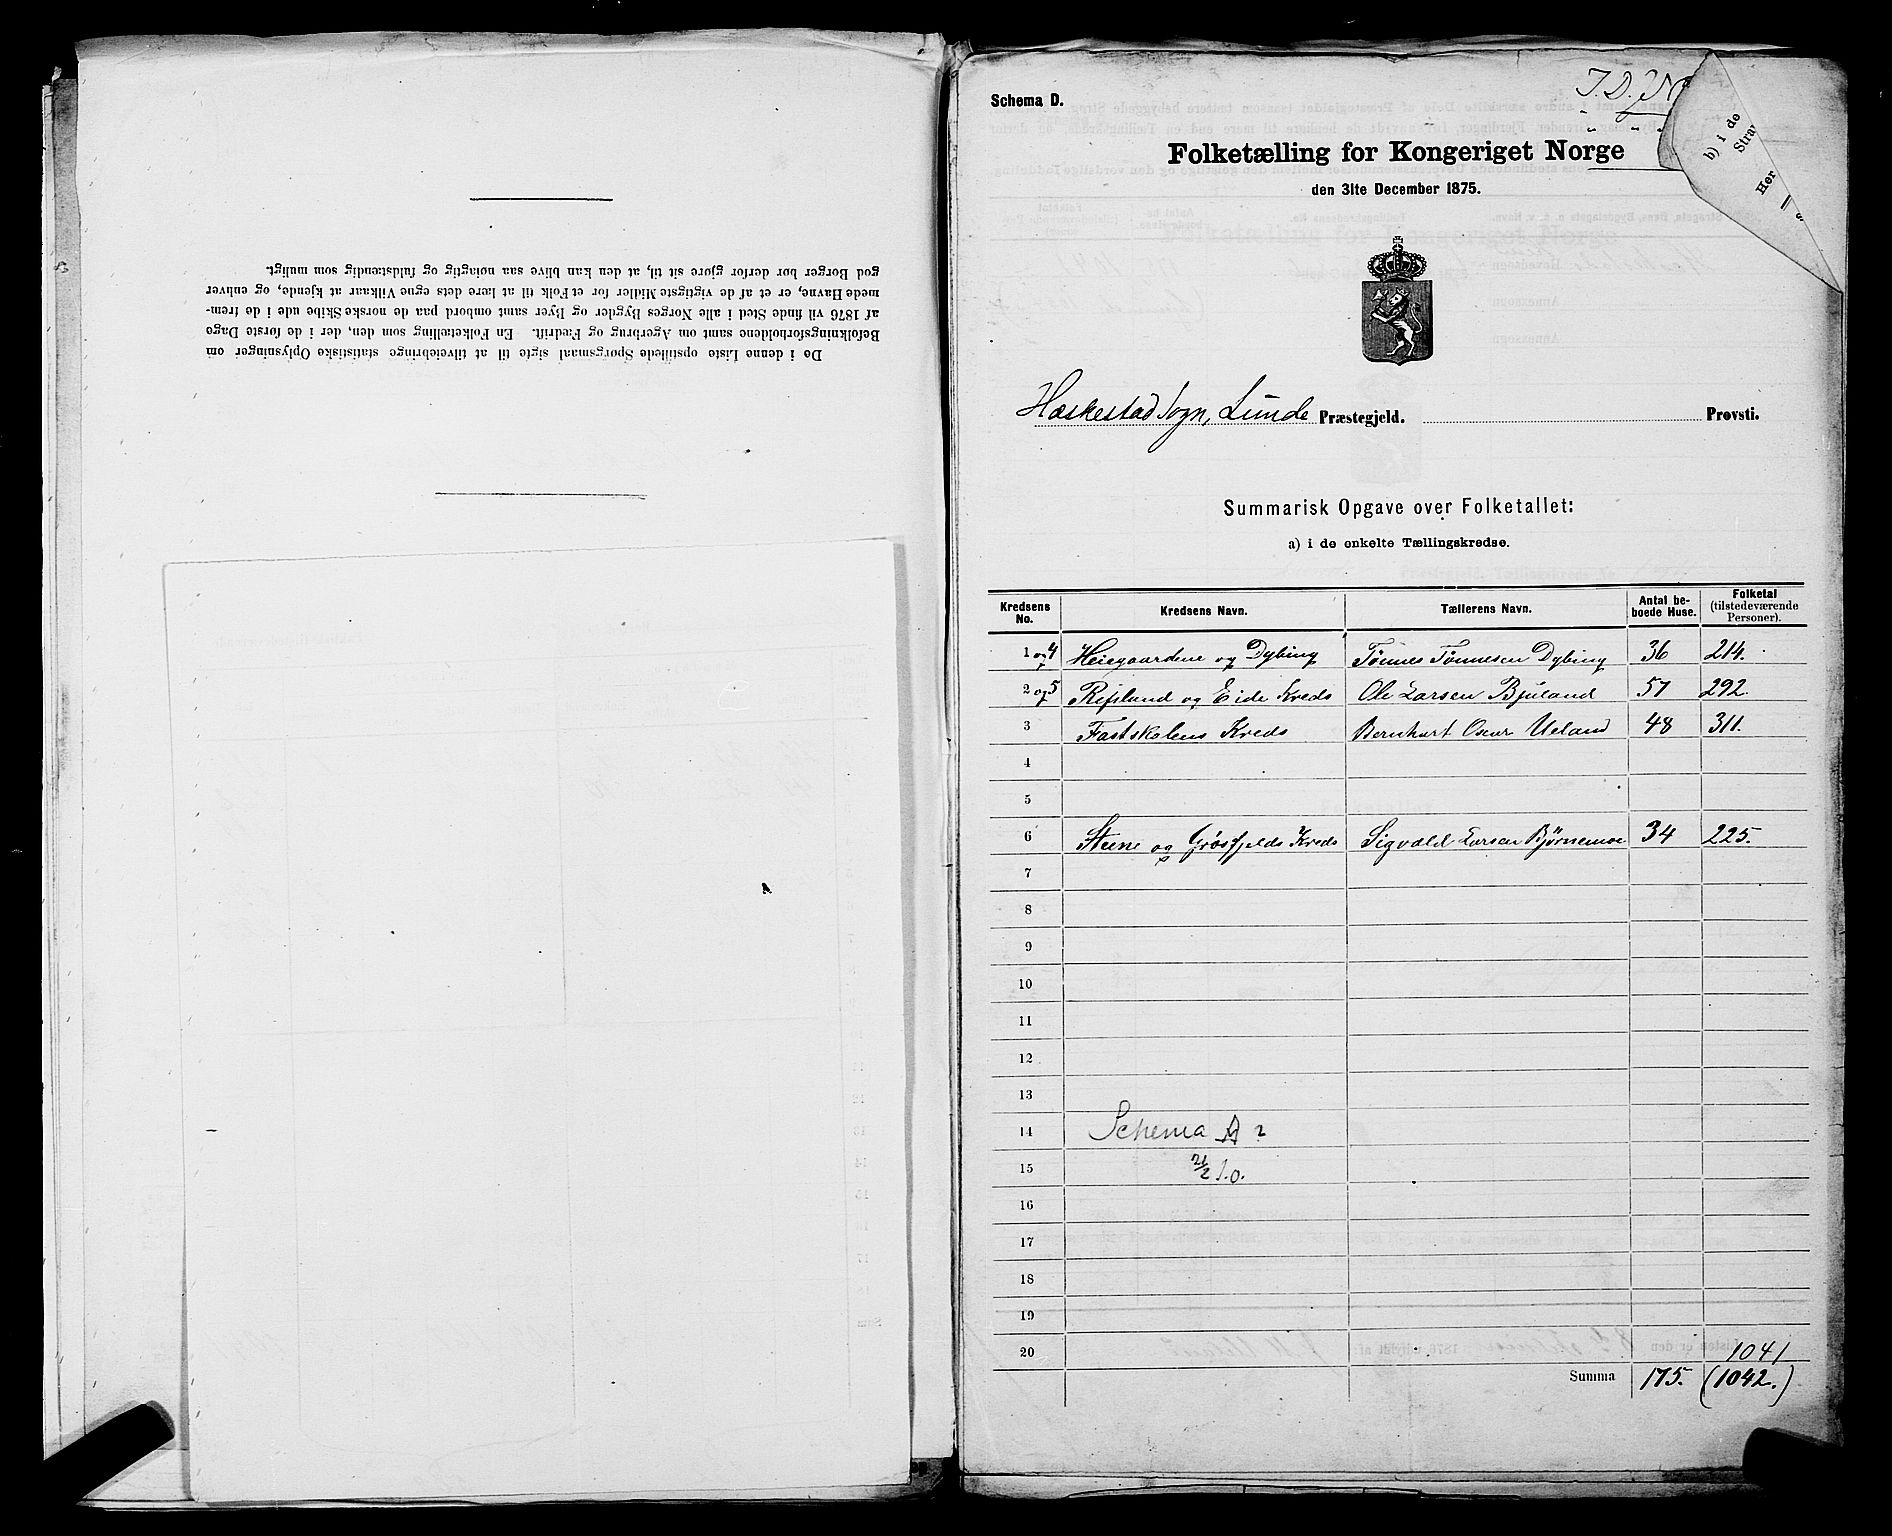 De i denne Liste opstillede Spørgsmaal sigte til at tilveiebringe statistiske Oplysninger om
Befolkningsforholdene samt om Agerbrug og Fædrift. En Folketælling som den, der i de første Dage
af 1876 vil finde Sted i alle Norges Bygder og Byer samt ombord paa de norske Skibe ude i de frem-
mede Havne, er et af de vigtigste Midler for et Folk til at lære dets egne Vilkaar at kjende, og enhver
god Borger bør derfor gjøre sit til, at den kan blive saa nøiagtig og fuldstændig som muligt.
Schema D.
b) i de
Her
Folketælling for Kongeriget Norge
den 31te December 1875.
Hæskestad Sogn, Lunde Præstegjeld. Provsti.
Summarisk Opgave over Folketallet:
a) i de enkelte Tællingskredse.
Kredsens No. Kredsens Navn. Tællerens Navn. Antal beboede Huse. Folketal (tilstedeværende Personer).
1 og 4 Heiegaardene og Dybing Tønnes Tønnesen Dybing 36 214.
2 og 5 Refsland og Eide Kreds Ole Larsen Bjuland 57 292.
3 Fastskolens Kreds Bernhart Oscar Ueland 48 311.
4
5
6 Steene og Grøsfjelds Kreds Sigvald Larsen Bjørnemoe 34 225.
7
8
9
10
11
12
13
14 Schema A ?
15
16
17
18
19
20 1041
Summa 175. (1042.)